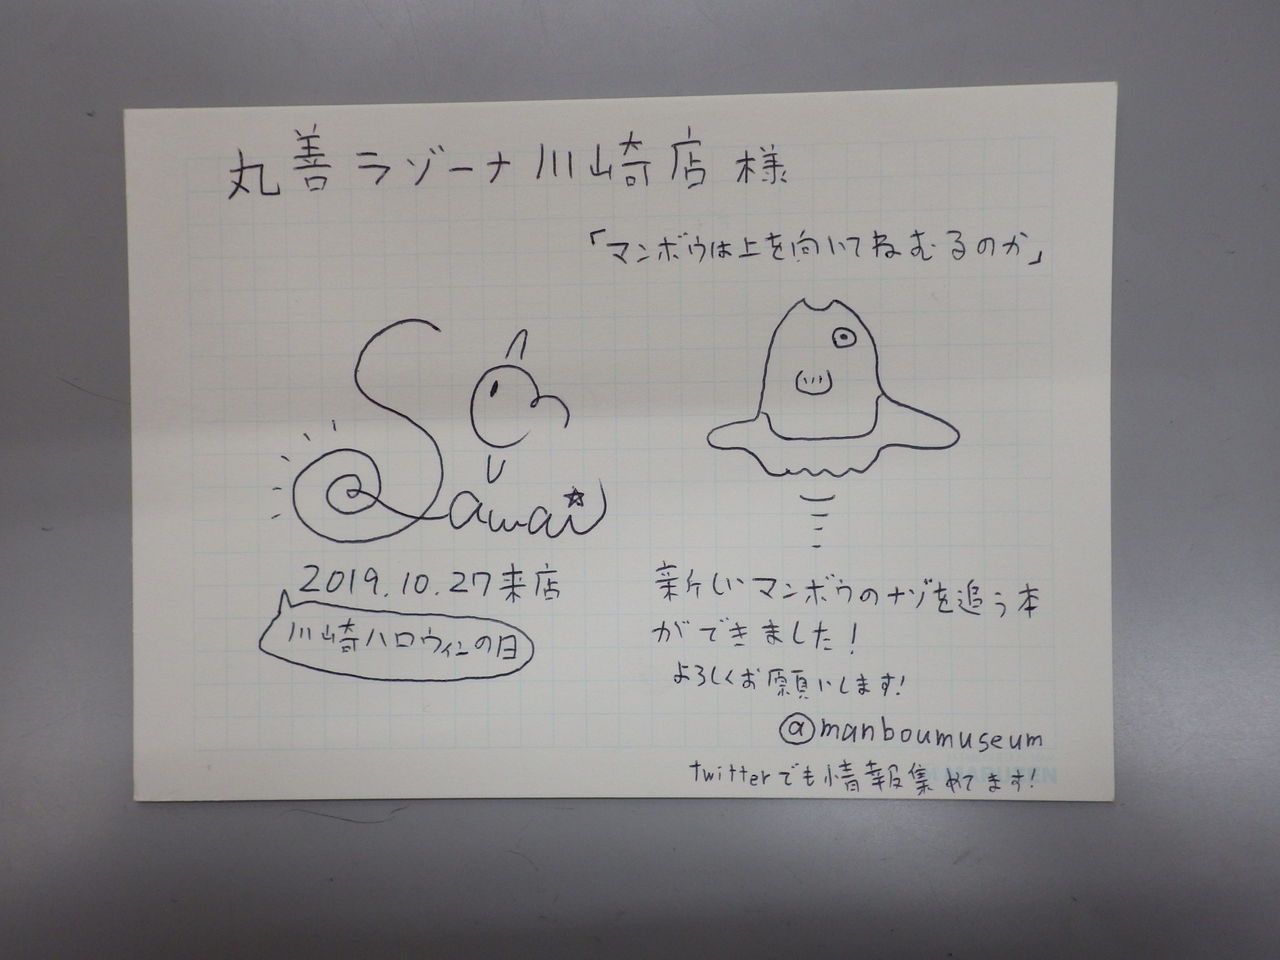 丸善ラゾーナ川崎店 様
「マンボウは上を向いてねむるのか」
Sawai
2019.10.27来店
川崎ハロウィンの日
新しいマンボウのナゾを追う本
ができました!
よろしくお願いします!
@manboumuseum
twitterでも情報集めてます!
MARUZEN